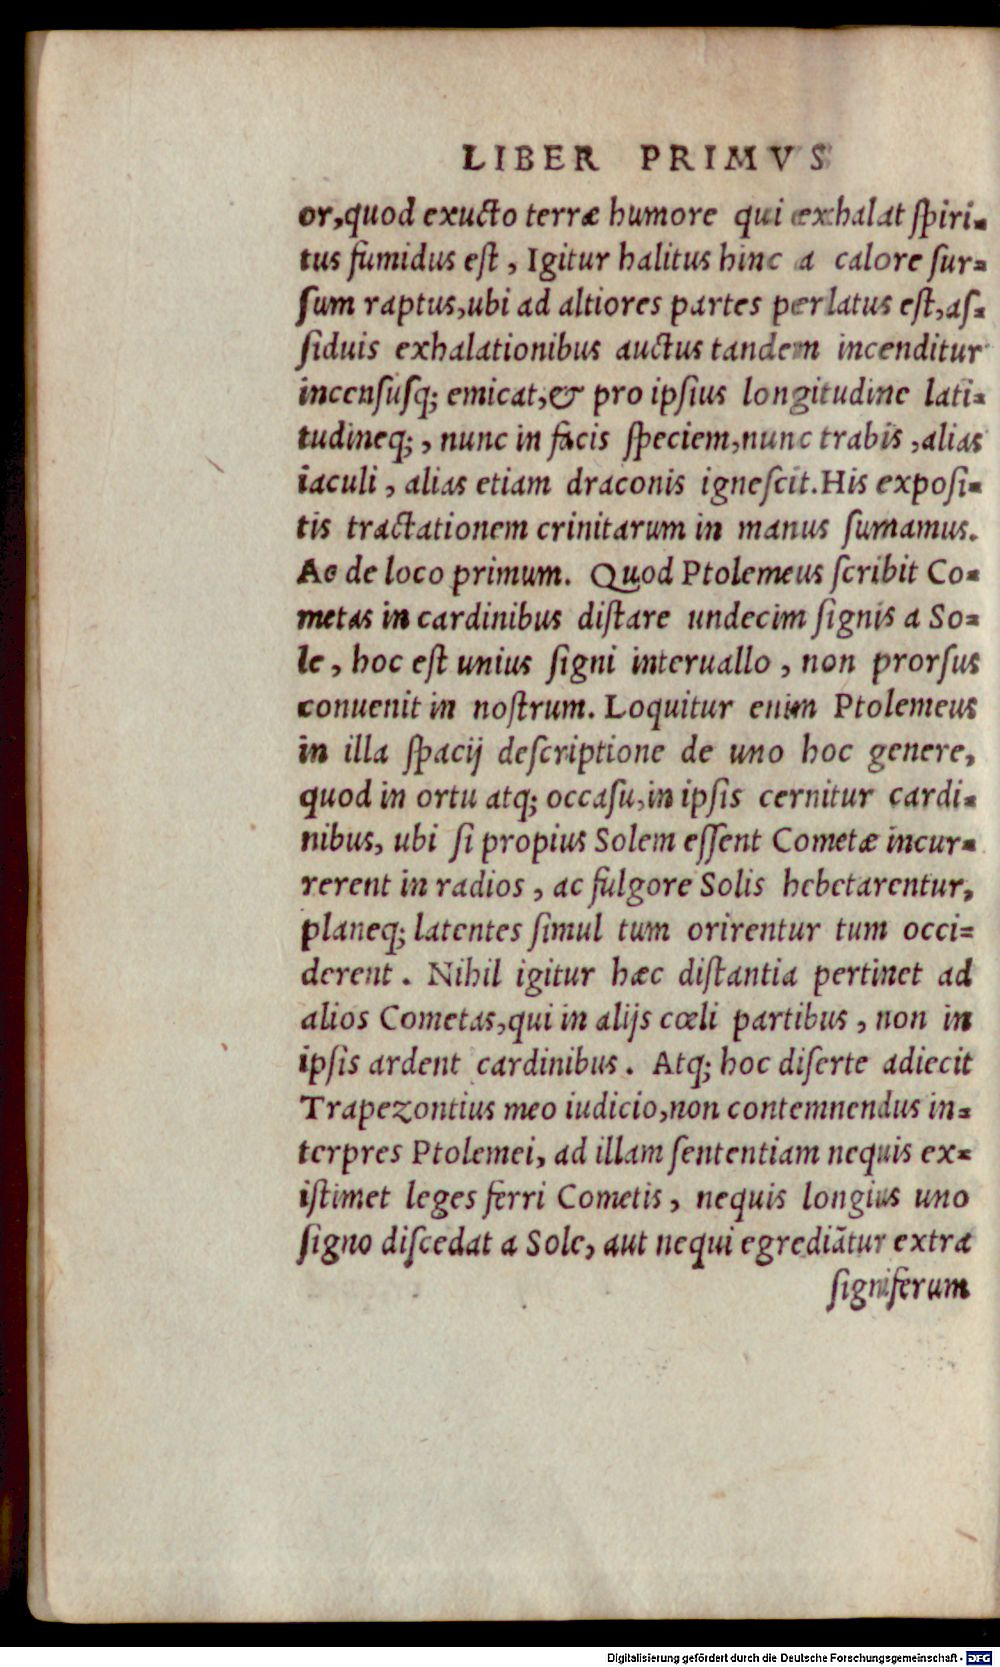 LIBER PRIMVS
or,quod exucto terræ humore qui exhalat ſpiri-
tus fumidus eſt, Igitur halitus hinc a calore ſur-
ſum raptus,ubi ad altiores partes perlatus eſt,aſ-
ſiduis exhalationibus auctus tandem incenditur
incenſuſq; emicat,& pro ipſius longitudine lati-
tudineq;, nunc in facis ſpeciem,nunc trabis ,alias
iaculi, alias etiam draconis igneſcit.His expoſi-
tis tractationem crinitarum in manus ſumamus.
Ac de loco primum. Quod Ptolemeus ſcribit Co-
metas in cardinibus diſtare undecim ſignis a So-
le, hoc eſt unius ſigni interuallo, non prorſus
conuenit in noſtrum. Loquitur enim Ptolemeus
in illa ſpacij deſcriptione de uno hoc genere,
quod in ortu atq; occaſu,in ipſis cernitur cardi-
nibus, ubi ſi propius Solem eſſent Cometæ incur-
rerent in radios, ac fulgore Solis hebetarentur,
planeq; latentes ſimul tum orirentur tum occi-
derent. Nihil igitur hæc diſtantia pertinet ad
alios Cometas,qui in alijs cœli partibus, non in
ipſis ardent cardinibus. Atq; hoc diſerte adiecit
Trapezontius meo iudicio,non contemnendus in-
terpres Ptolemei, ad illam ſententiam nequis ex-
iſtimet leges ferri Cometis, nequis longius uno
ſigno diſcedat a Sole, aut nequi egrediãtur extra
ſigniferum
Digitalisierung gefördert durch die Deutsche Forschungsgemeinschaft - DFG